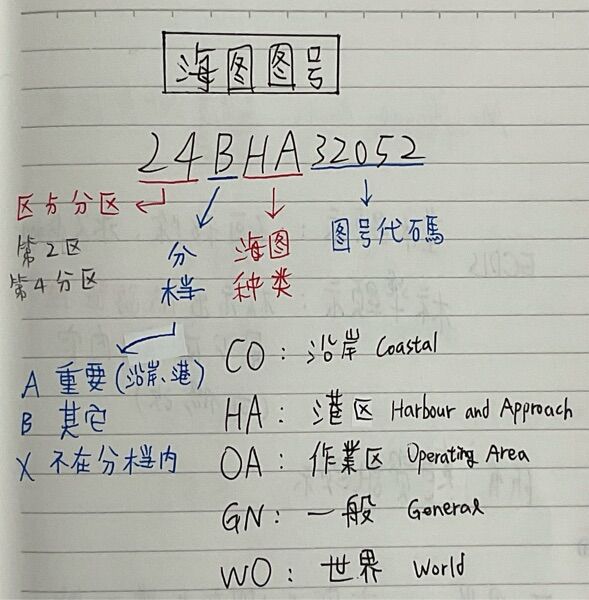 海图图号
24BHA32052
区与分区
第2区
第4分区
分档
海图种类
图号代碼
A 重要(沿岸、港)
B 其它
X 不在分档内
CO: 沿岸 Coastal
HA: 港区 Harbour and Approach
OA: 作業区 Operating Area
GN: 一般 General
WO: 世界 World